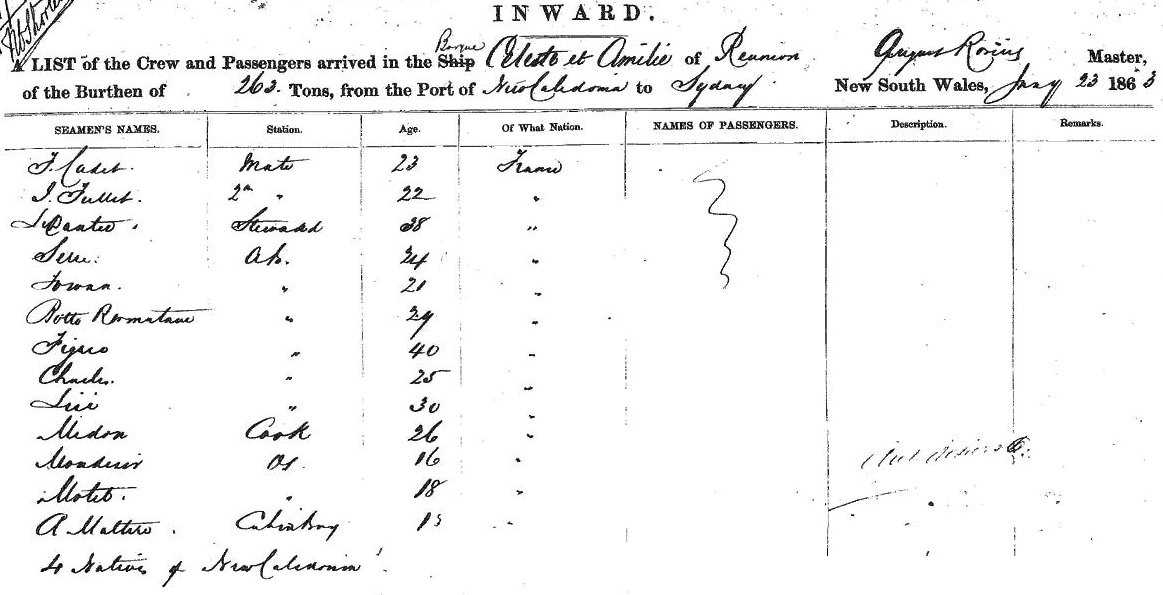 INWARD.
Barque
A LIST of the Crew and Passengers arrived in the Ship Celeste et Amilie of Reunion August Master,
of the Burthen of 263 Tons, from the Port of New Caledonia to Sydney New South Wales, Jany 23 1863
SEAMEN'S NAMES. Station. Age. Of What Nation. NAMES OF PASSENGERS. Description. Remarks.
F. Cadet. Mate 23 France
J. Fullet. 2nd " 22 "
Steward 38 "
Ab. 24 "
" 21 "
Potto " 29 "
Figaro " 40 "
Charles. " 25 "
" 30 "
Medon Cook 26 "
Mondesir Os. 16 "
Motet. " 18 "
A Cabin Boy 15 "
4 Natives of New Caledonia